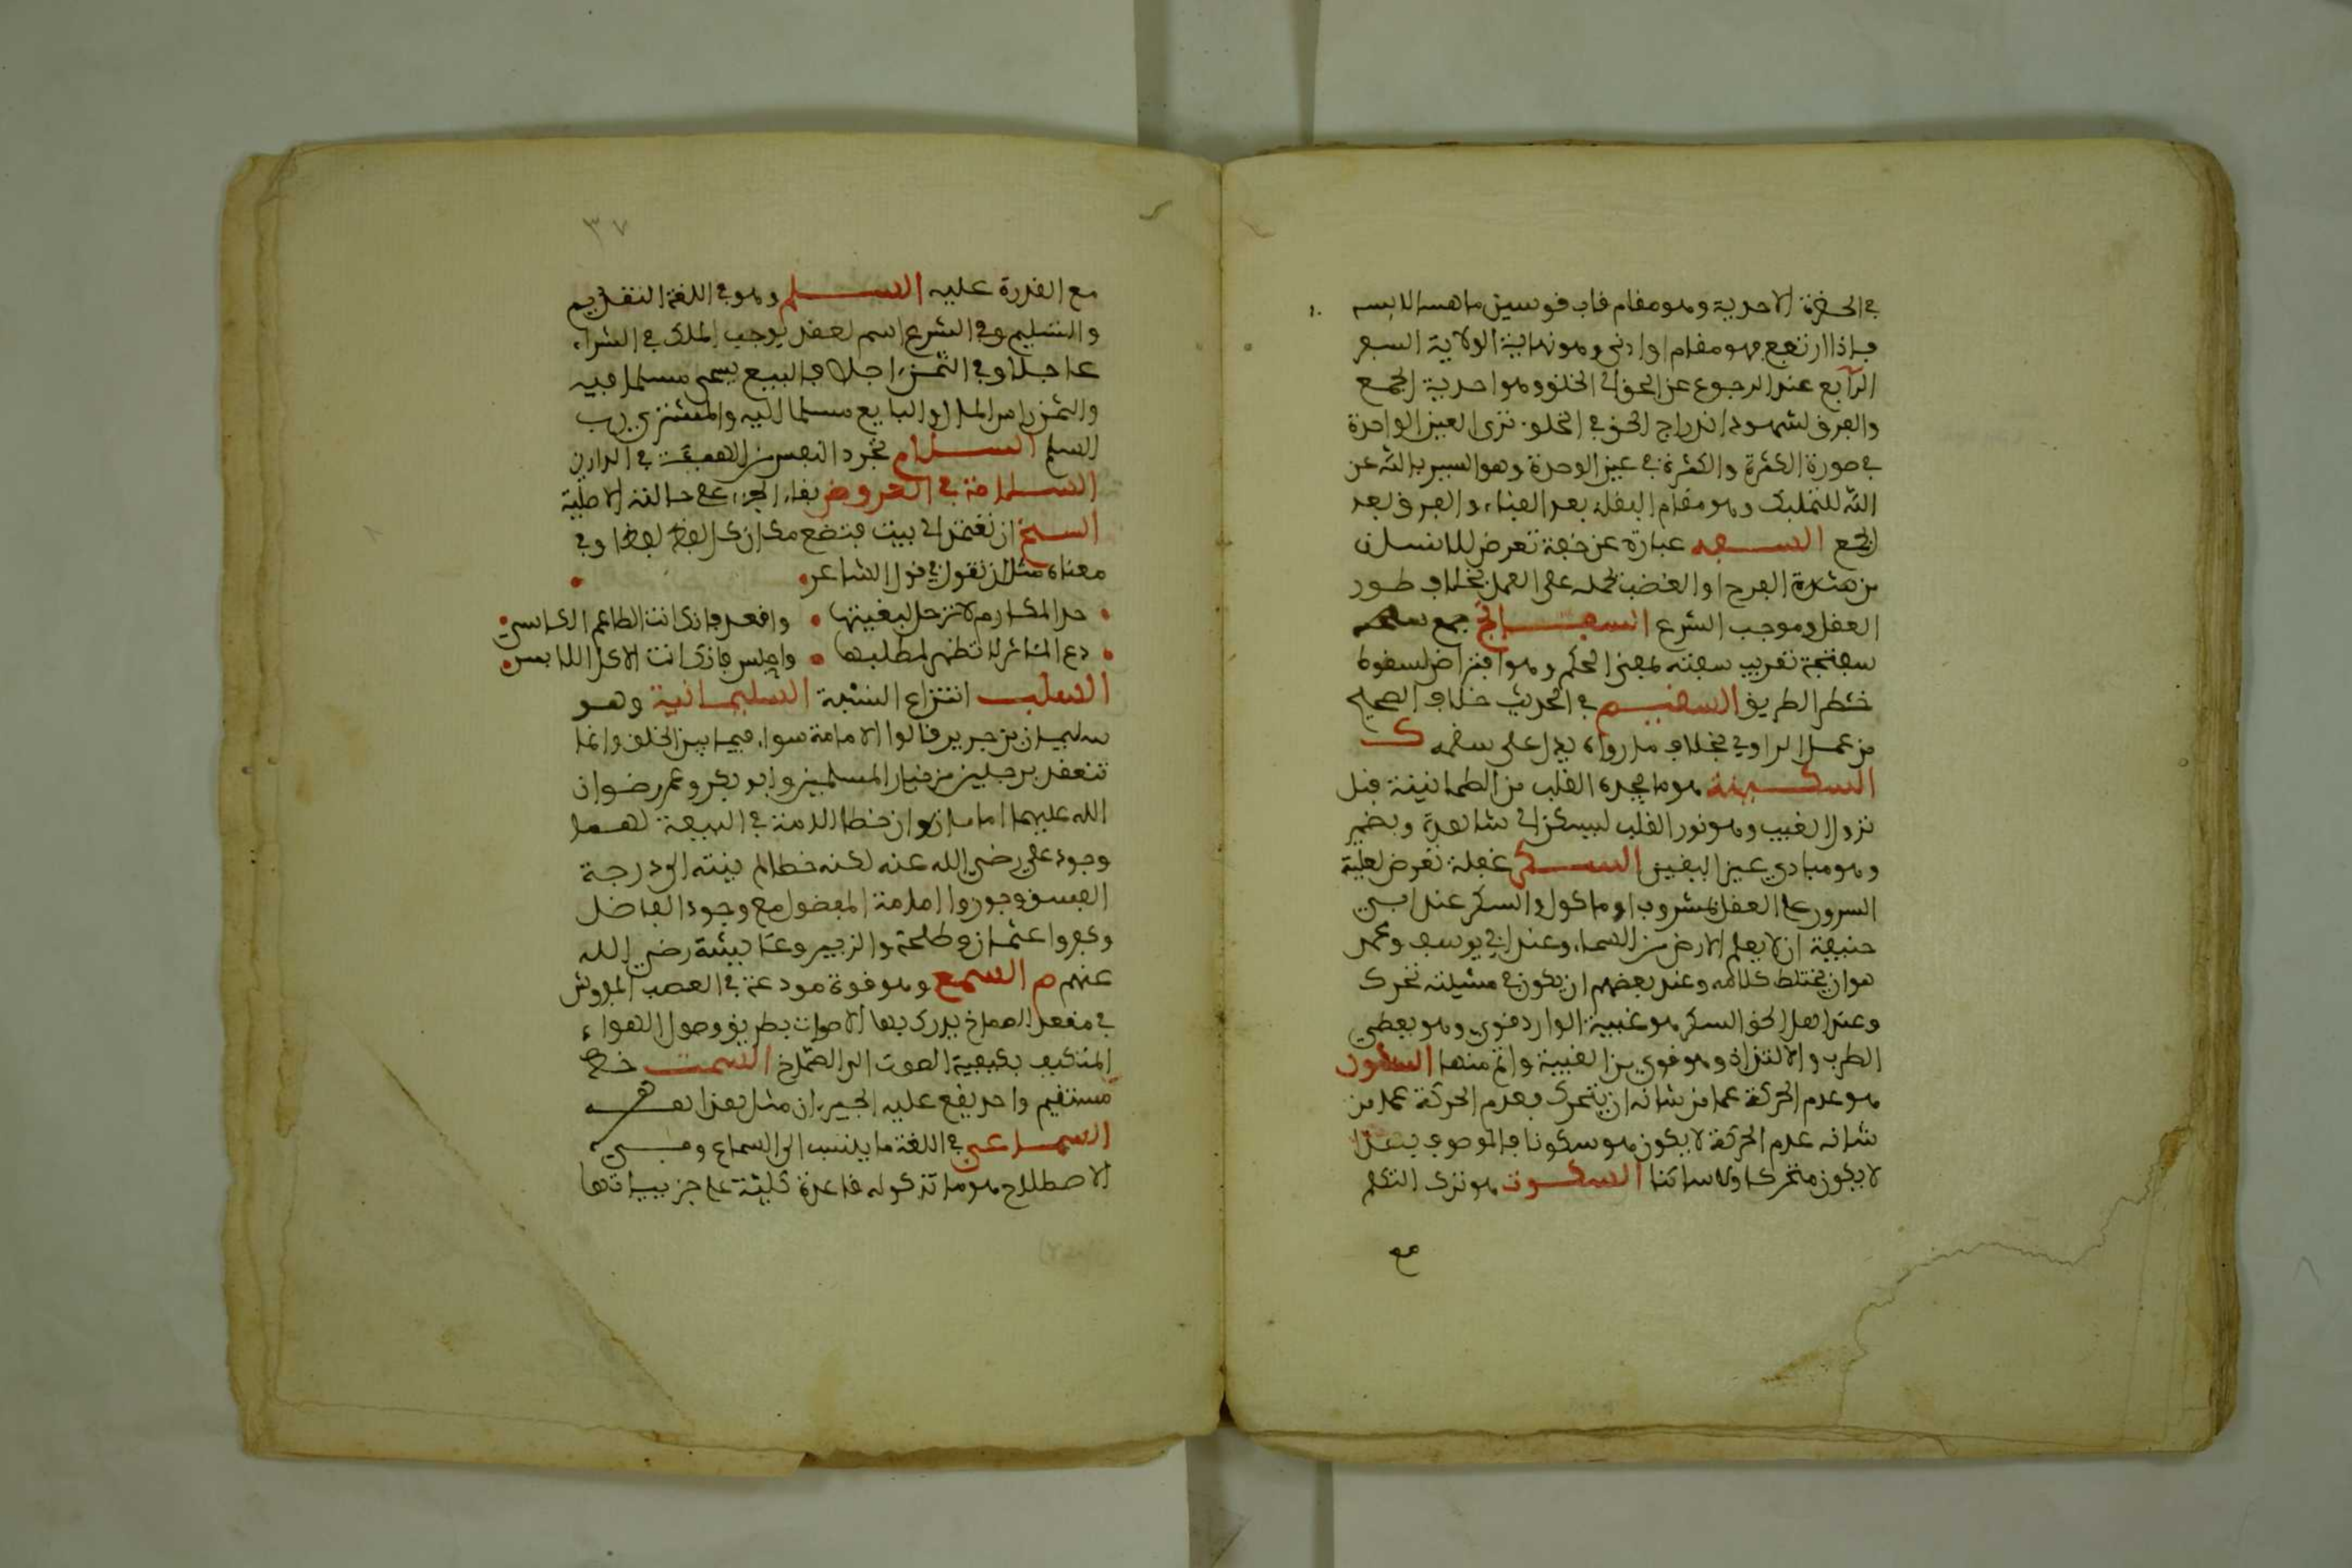 في الحضرة الاحدية وهو مقام قاب قوسين ما
فاذا ارتفع فهو مقام او ادنى وهو نهاية الولاية السفر
الرابع عند الرجوع عن الحق الى الخلق وهو احدية الجمع
والفرق لشهود اندراج الحق في الخلق ترى العين الواحدة
في صورة الكثرة والكثرة في عين الوحدة وهو السير بالله عن
الله للتمليك وهو مقام البقاء بعد الفناء والفرق بعد
الجمع السفه عبارة عن خفة تعرض للانسان
من شدة الفرح او الغضب تحمله على العمل بخلاف طور
العقل وموجب الشرع السفاتج جمع
سفتجة تعريب سفته بمعنى الحكم وهو اقتراض لسقوط
خطر الطريق السقيم في الحديث خلاف الصحيح
من عمل الراوي بخلاف ما رواه يدل على سقمه ك
السكينة هو ما يجده القلب من الطمانينة قبل
نزول الغيب وهو نور القلب ليسكن الى شاهده ويضمر
وهو مبادي عين اليقين السكر غفلة تعرض لغلبة
السرور على العقل بمشروب او ماكول والسكر عند ابي
حنيفة ان لا يعلم الارض من السماء وعند ابي يوسف ومحمد
هو ان يختلط كلامه وعند بعضهم ان يكون في مشيته تحرك
وعند اهل الحق السكر هو غيبة الوارد قوي وهو يعطي
الطرب والالتذاذ وهو قوي من الغيبة واتم منها السكون
هو عدم الحركة عما من شانه ان يتحرك فعدم الحركة عما من
شانه عدم الحركة لا يكون هو سكونا فالموصوف بهذا
لا يكون متحركا ولا ساكنا السكوت هو ترك التكلم
مع
٣٧
مع القدرة عليه السلم وهو في اللغة التقديم
والتسليم وفي الشرع اسم لعقد يوجب الملك في الشراء
عاجلا وفي الثمن اجلا فالبيع يسمى مسلما فيه
والثمن راس المال والبايع مسلما اليه والمشتري رب
السلم السلام تجرد النفس من في الدارين
السلامة في العروض بقاء الجزء على حالته الاصلية
السلخ ان تعمد الى بيت فتضع مكان كل لفظ لفظا وفي
معناه مثل ان تقول في قول الشاعر
دع المكارم لا ترحل لبغيتها واقعد فانك انت الطاعم الكاسي
دع المآثر لا تظهر لمطلبها واجلس فانك انت الاكل اللابس
السلب انتزاع النسبة السليمانية وهو
سليمان بن جرير قالوا الامامة سواء فيما بين الخلق وانما
تنعقد برجلين من خيار المسلمين وابو بكر وعمر رضوان
الله عليهما امامان وان خطا الامة في البيعة لهما
وجود علي رضي الله عنه لكنه خطا لم ينته الى درجة
الفسق وجوزوا امامة المفضول مع وجود الفاضل
وكفروا عثمان وطلحة والزبير وعائشة رضي الله
عنهم م السمع وهو قوة مودعة في العصب المفروش
في مقعر الصماخ يدرك بها الاصوات بطريق وصول الهواء
المتكيف بكيفية الصوت الى الصماخ السمت خط
مستقيم واحد يقع عليه الحيزان مثل هذا
السماعي في اللغة ما ينسب الى السماع وفي
الاصطلاح هو ما لم تذكر له قاعدة كلية على جزيياتها